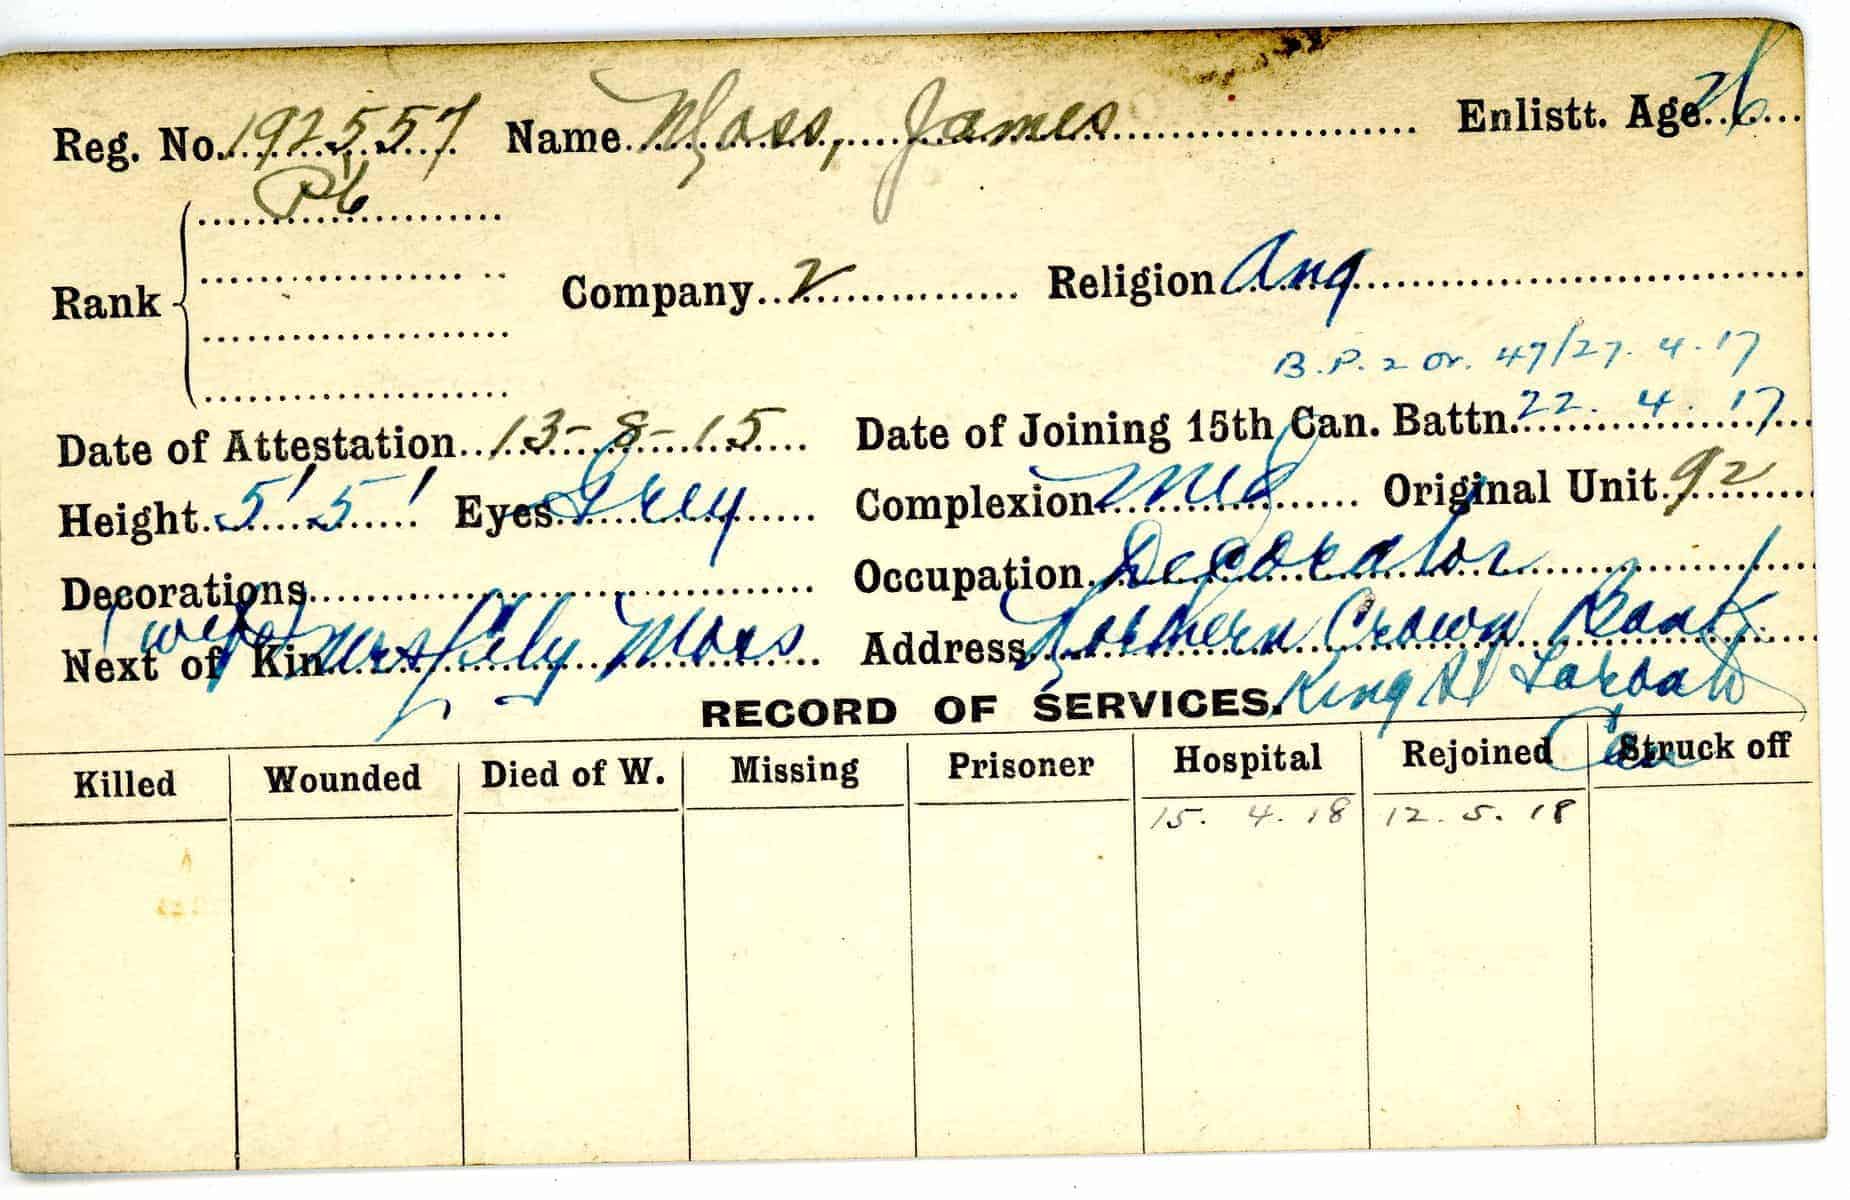 Reg. No. 192557 Name Moss, James Enlistt. Age 26
Pte
Rank Company 2 Religion Ang
B.P. 2 Or. 47/27. 4. 17
Date of Attestation 13-8-15 Date of Joining 15th Can. Battn. 22. 4. 17
Height 5' 5' Eyes Grey Complexion Med Original Unit 92
Decorations Occupation Decorator
(wife)
Next of Kin Mrs Moss Address Northern Crown Bank
RECORD OF SERVICES. King St
Can
Killed Wounded Died of W. Missing Prisoner Hospital Rejoined Struck off
15. 4. 18 12. 5. 18